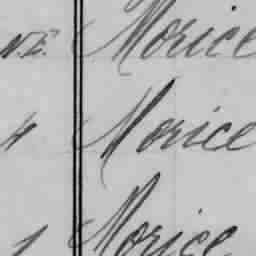 N.E. Morice
4 Morice
1 Morice